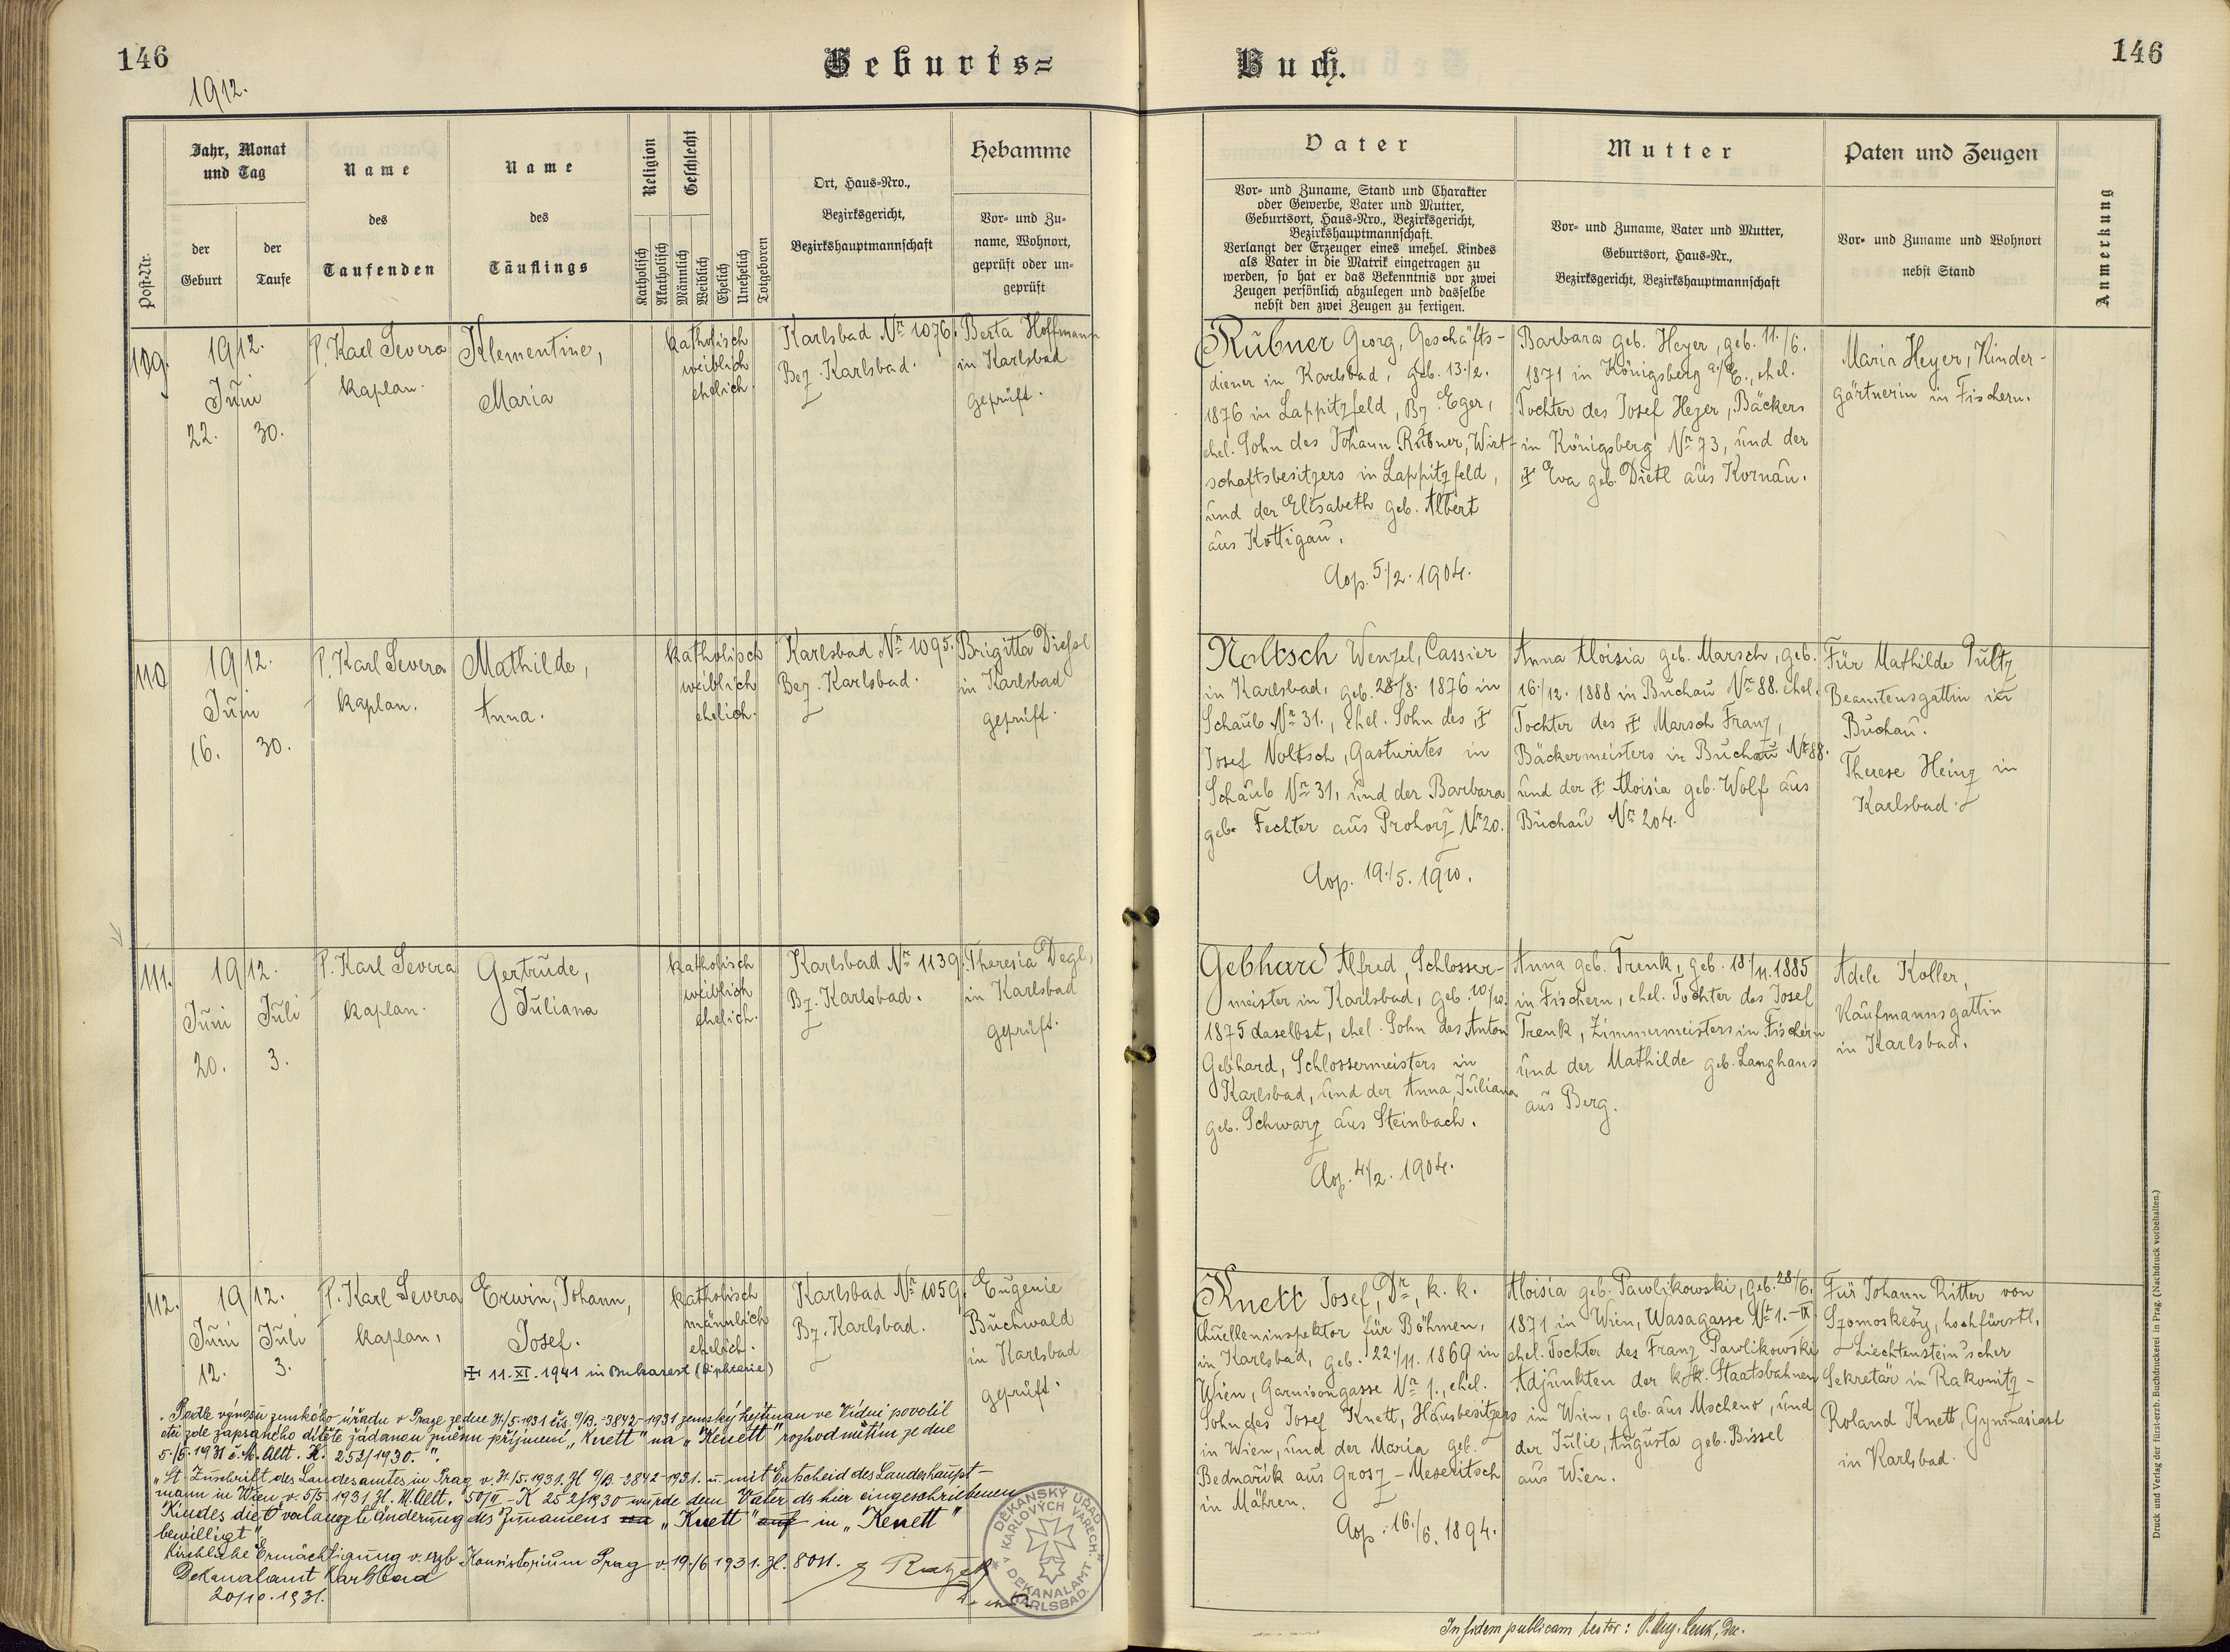 146
1912.
Geburts=
Buch.
146
Post-Nr.
Jahr, Monat
und Tag
der
Geburt
der
Taufe
Name
des
Taufenden
Name
des
Täuflings
Religion
Katholisch
Akatholisch
Geschlecht
Männlich
Weiblich
Ehelich
Unehelich
Totgeboren
Ort, Haus=Nro.,
Bezirksgericht,
Bezirkshauptmannschaft
Hebamme
Vor= und Zu=
name, Wohnort,
geprüft oder un=
geprüft
Vater
Vor= und Zuname, Stand und Charakter
oder Gewerbe, Vater und Mutter,
Geburtsort, Haus=Nro., Bezirksgericht,
Bezirkshauptmannschaft.
Verlangt der Erzeuger eines unehel. Kindes
als Vater in die Matrik eingetragen zu
werden, so hat er das Bekenntnis vor zwei
Zeugen persönlich abzulegen und dasselbe
nebst den zwei Zeugen zu fertigen.
Mutter
Vor= und Zuname, Vater und Mutter,
Geburtsort, Haus=Nr.,
Bezirksgericht, Bezirkshauptmannschaft
Paten und Zeugen
Vor= und Zuname und Wohnort
nebst Stand
Anmerkung
109.
1912.
Juni
22. 30.
P. Karl Severa
Kaplan.
Klementine,
Maria
katholisch
weiblich
ehelich.
Karlsbad Nr 1076.
Bez. Karlsbad.
Berta Hoffmann
in Karlsbad
geprüft.
Rubner Georg, Geschäfts-
diener in Karlsbad, geb. 13./2.
1876 in Lappitzfeld, Bz. Eger,
ehel. Sohn des Johann Rubner, Wirt-
schaftsbesitzers in Lappitzfeld,
und der Elisabeth geb. Albert
aus Kottigau.
Cop. 5./2. 1904.
Barbara geb. Heyer, geb. 11./6.
1871 in Königsberg a./E., ehel.
Tochter des Josef Heyer, Bäckers
in Königsberg Nr 73, und der
‡ Eva geb. Dietl aus Kornau.
Maria Heyer, Kinder-
gärtnerin in Fischern.
110
1912.
Juni
16. 30.
P. Karl Severa
Kaplan.
Mathilde,
Anna.
katholisch
weiblich
ehelich.
Karlsbad Nr 1095.
Bez. Karlsbad.
Brigitta Dießl
in Karlsbad
geprüft.
Noltsch Wenzel, Cassier
in Karlsbad, geb. 28./8. 1876 in
Schaub Nr 31., ehel. Sohn des ‡
Josef Noltsch, Gastwirtes in
Schaub Nr 31, und der Barbara
geb. Fechter aus Prohorz Nr 20.
Cop. 19./5. 1910.
Anna Aloisia geb. Marsch, geb.
16./12. 1888 in Buchau Nr 88. ehel.
Tochter des ‡ Marsch Franz,
Bäckermeisters in Buchau Nr 88.
und der ‡ Aloisia geb. Wolf aus
Buchau Nr 204.
Für Mathilde Pultz
Beamtensgattin in
Buchau.
Therese Heinz in
Karlsbad.
111.
1912.
Juni Juli
20. 3.
P. Karl Severa
Kaplan.
Gertrude,
Juliana
katholisch
weiblich
ehelich.
Karlsbad Nr 1139.
Bz. Karlsbad.
Theresia Degl,
in Karlsbad
geprüft.
Gebhard Alfred, Schlosser-
meister in Karlsbad, geb. 10./10.
1875 daselbst, ehel. Sohn des Anton
Gebhard, Schlossermeisters in
Karlsbad, und der Anna Juliana
geb. Schwarz aus Steinbach.
Cop. 4./2. 1904.
Anna geb. Trenk, geb. 18./11. 1885
in Fischern, ehel. Tochter des Josef
Trenk, Zimmermeisters in Fischern
und der Mathilde geb. Langhans
aus Berg.
Adele Koller,
Kaufmannsgattin
in Karlsbad.
112.
1912.
Juni Juli
12. 3.
P. Karl Severa
Kaplan.
Erwin, Johann,
Josef.
katholisch
männlich
ehelich.
‡ 11. XI. 1941 in Bukarest (Diphterie)
Karlsbad Nr 1059.
Bz. Karlsbad.
Eugenie
Buchwald
in Karlsbad
geprüft.
Knett Josef, Dr., k. k.
Quelleninspektor für Böhmen,
in Karlsbad, geb. 22./11. 1869 in
Wien, Garnisongasse Nr 1., ehel.
Sohn des Josef Knett, Hausbesitzers
in Wien, und der Maria geb.
Bednařik aus Grosz-Meseritsch
in Mähren.
Cop. 16./6. 1894.
Aloisia geb. Pawlikowski, geb. 28./6.
1871 in Wien, Wasagasse Nr 1. - IX
ehel. Tochter des Franz Pawlikowski
Adjunkten der k. k. Staatsbahnen
in Wien, geb. aus Mscheno, und
der Julie, Augusta geb. Bissel
aus Wien.
Für Johann Ritter von
Szomoskeöy, hochfürstl.
Liechtenstein'scher
Sekretär in Rakonitz-
Roland Knett, Gymnasiast
in Karlsbad.
Podle výnosu zemského úřadu v Praze ze dne 31./5. 1931 čís. 9/B.-3842-1931 zemský hejtman ve Vídni povolil
otci zde zapsaného dítěte žádanou změnu příjmení „Knett" na „Kenett" rozhodnutím ze dne
5./5. 1931 č. M. Abt. K. 252/1930.".
„Lt. Zuschrift des Landesamtes in Prag v. 31./5. 1931. Zl 9/B-3842-1931. u. mit Entscheid des Landeshaupt-
mann in Wien v. 5/5. 1931 Zl. M. Abt. 50/II-K 252/1930 wurde dem Vater ds hier eingeschriebenen
Kindes die verlangte Änderung des Zunamens „Knett" auf in „Kenett"
bewilligt".
Kirchliche Ermächtigung v. erzb. Konsistorium Prag v. 19./6 1931. Zl. 8011.
Dekanalamt Karlsbad
20/10. 1931.
DĚKANSKÝ ÚŘAD
V KARLOVÝCH VARECH.
DEKANALAMT
KARLSBAD.
In fidem publicam testor: P. Aug. Lenk, Dec.
Druck und Verlag der fürst-erzb. Buchdruckerei in Prag. (Nachdruck vorbehalten.)